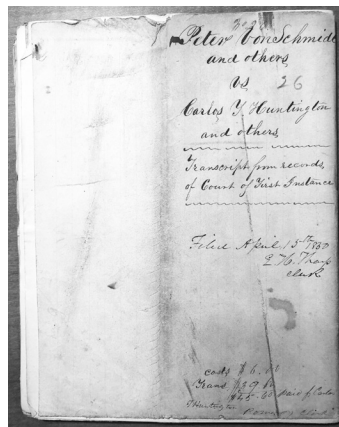 Peter VonSchmidt
and others
vs 26
Carlos Y. Huntington
and others
Transcript from records
of Court of First Instance
Filed April 15th 1850
E. H. Tharp
clerk
costs $6.
Trans
Paid by
Huntington